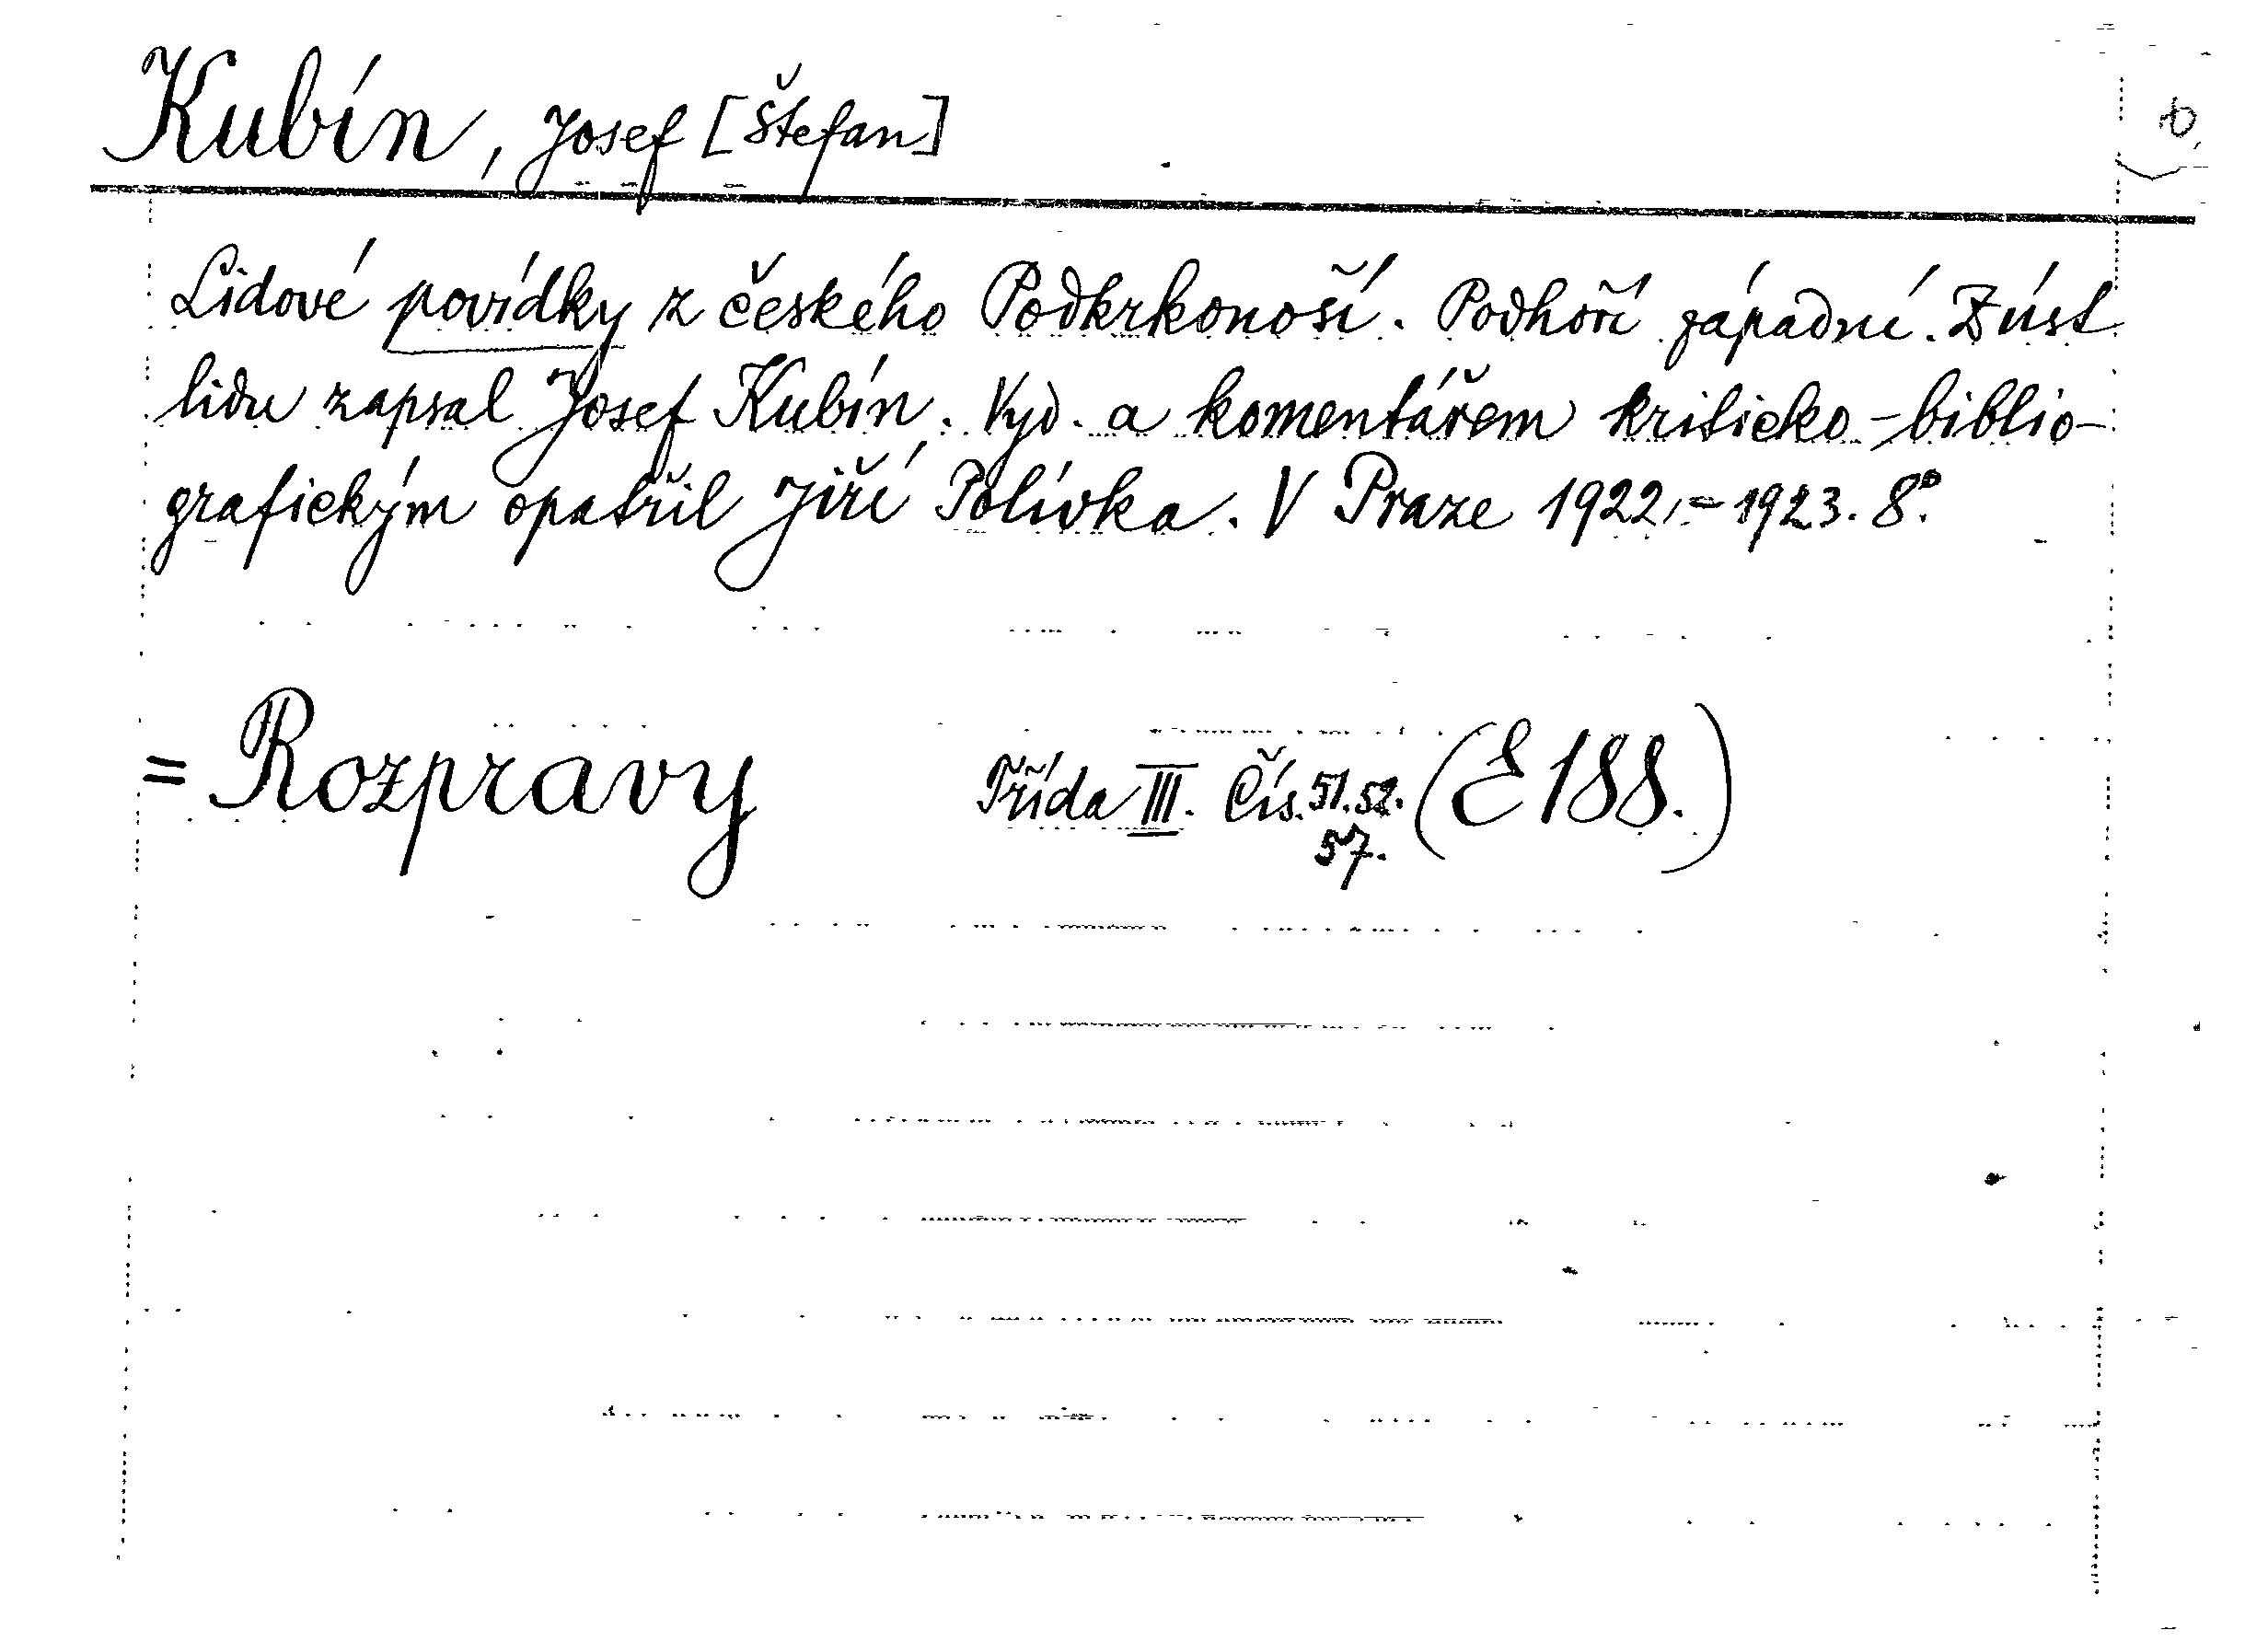 Kubín, Josef [Štefan]
Lidové povídky z českého Podkrkonoší. Podhoří západní. Z úst
lidu zapsal Josef Kubín. Vyd. a komentářem kriticko-biblio-
grafickým opatřil Jiří Polívka. V Praze 1922,-1923. 8°.
= Rozpravy Třída III. Čís. 51. 52. (E 188.)
57.